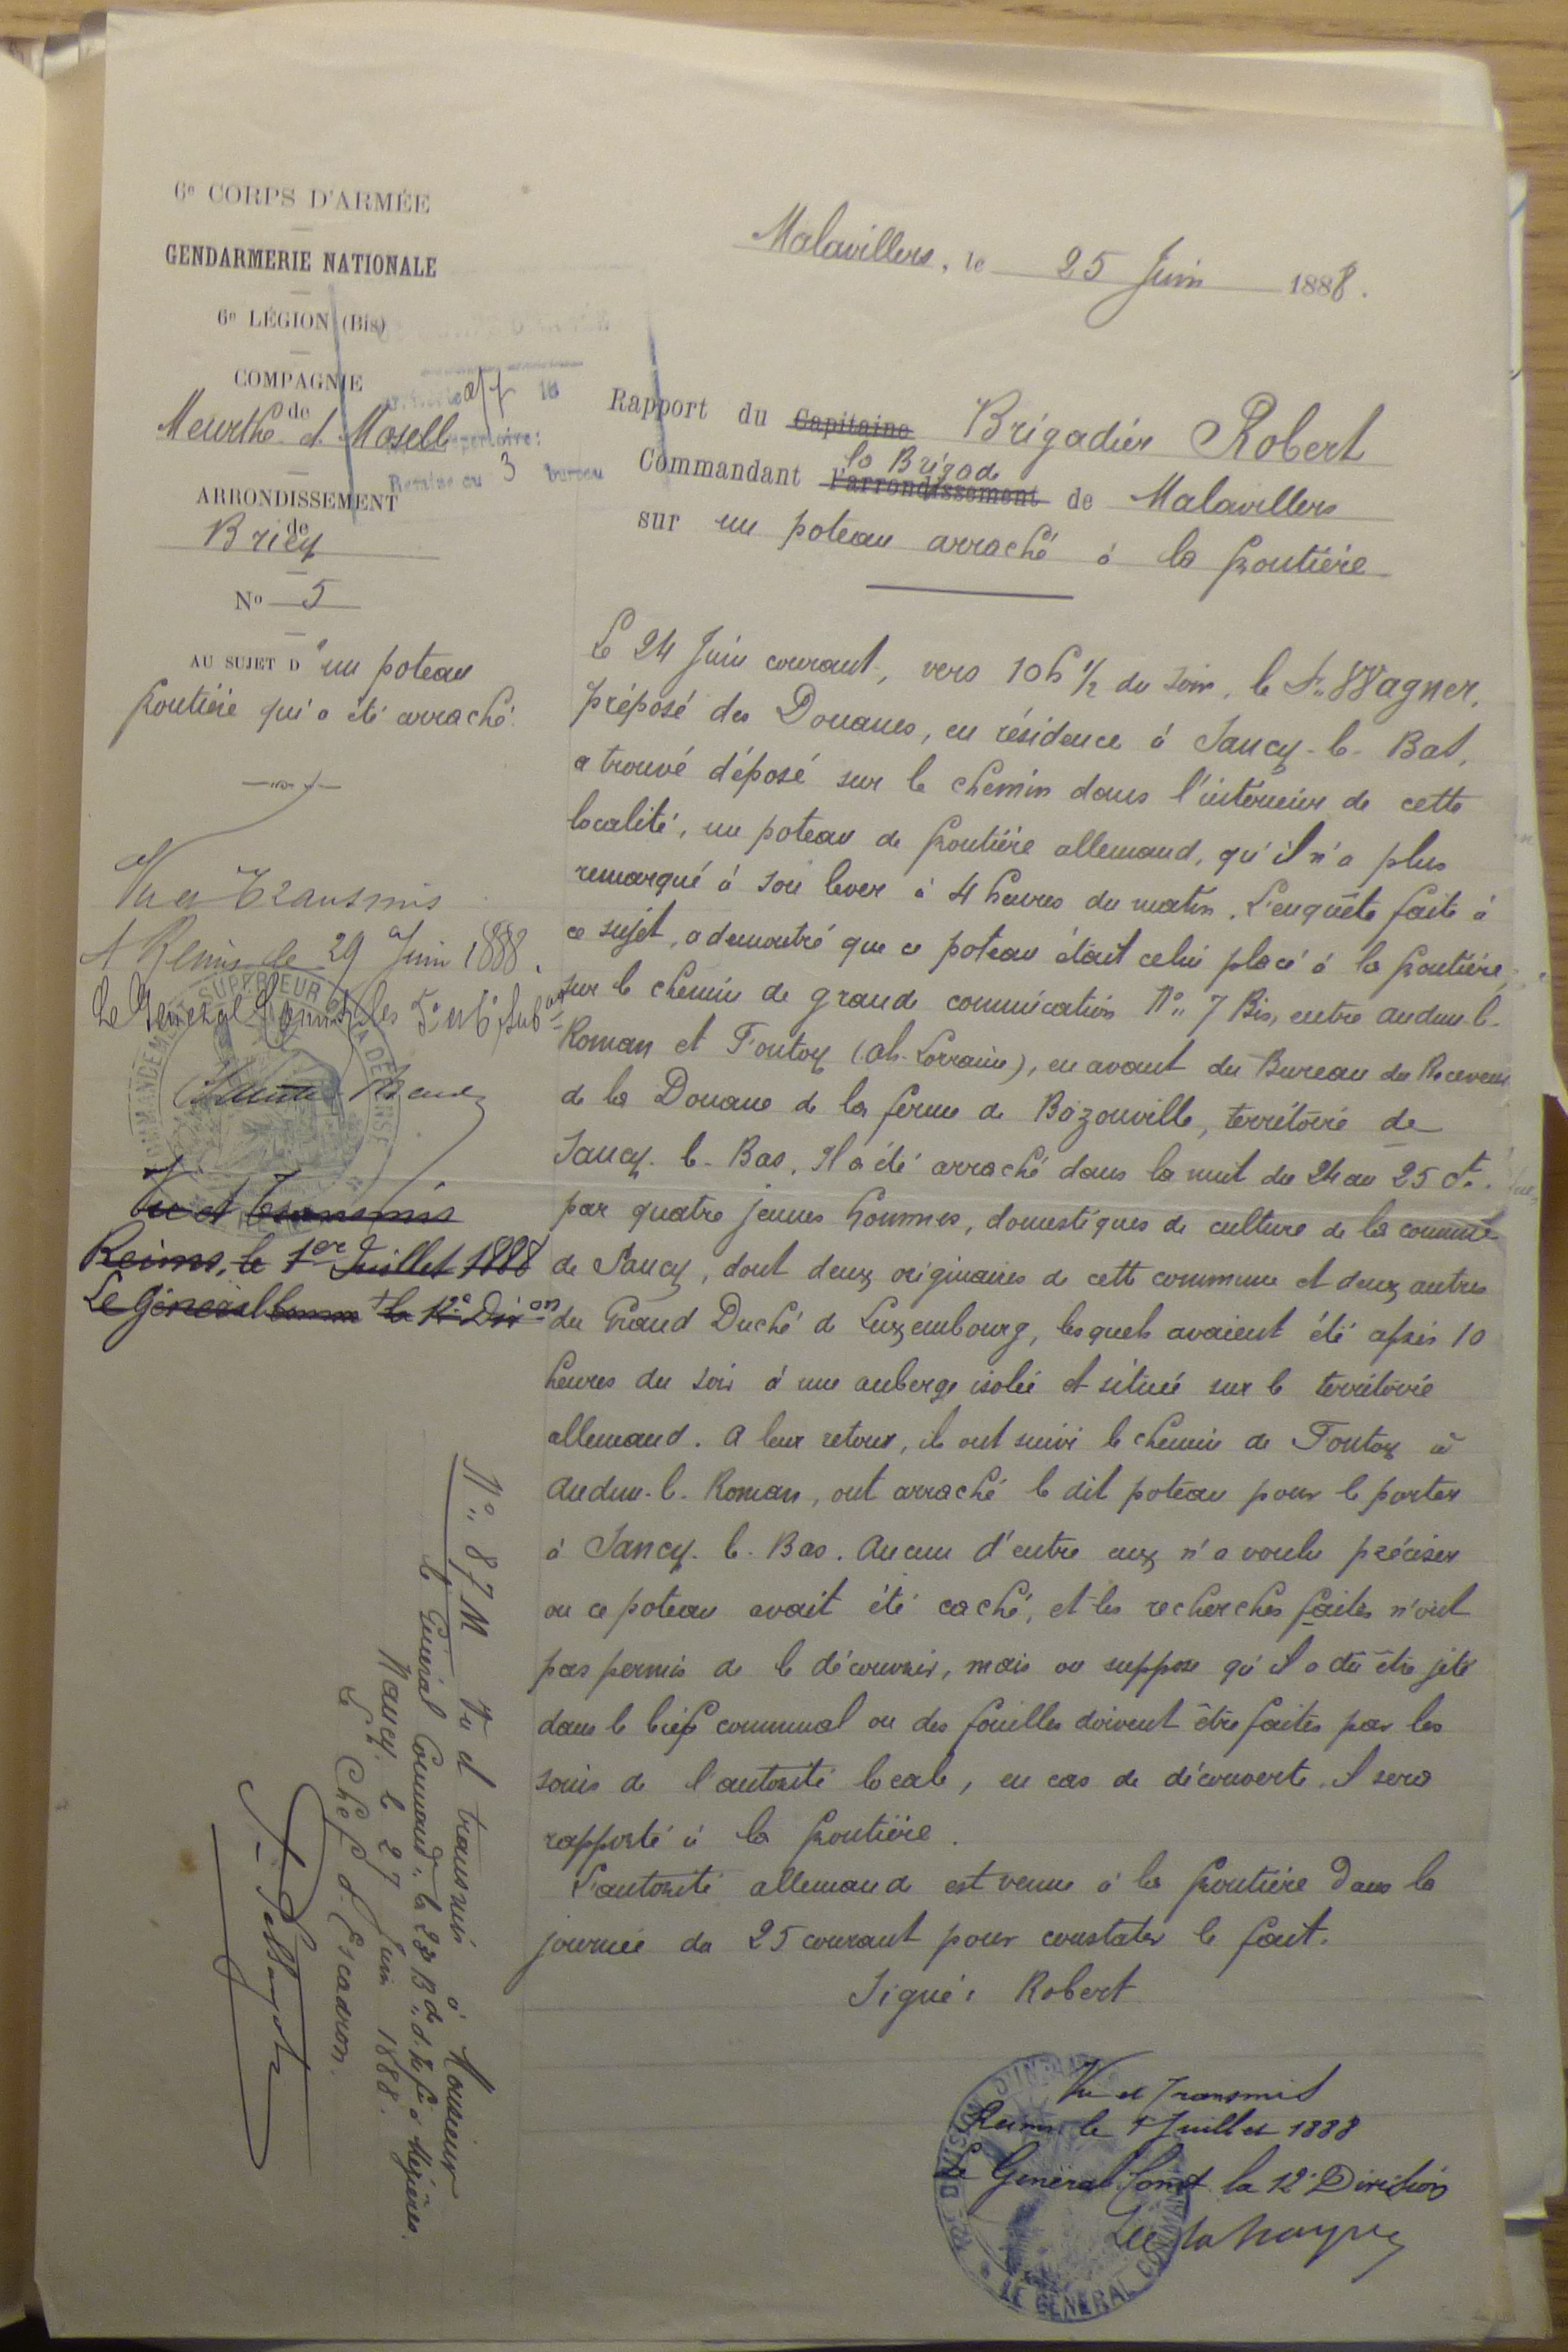 6e CORPS D'ARMÉE
GENDARMERIE NATIONALE
6e LÉGION (Bis)
COMPAGNIE
de
Meurthe et Moselle
ARRONDISSEMENT
de
Briey
No 5
AU SUJET D'un poteau
frontière qui a été arraché.
Malavillers, le 25 Juin 1888.
Rapport du Capitaine Brigadier Robert
la Brigade
Commandant l'arrondissement de Malavillers
sur un poteau arraché à la frontière
Le 24 Juin courant, vers 10h 1/2 du soir, le Sr Wagner,
préposé des Douanes, en résidence à Sancy-le-Bas,
a trouvé déposé sur le chemin dans l'intérieur de cette
localité, un poteau de frontière allemand, qu'il n'a plus
remarqué à son lever à 4 heures du matin. L'enquête faite à
ce sujet, a démontré que ce poteau était celui placé à la frontière,
sur le chemin de grande communication No 7 Bis, entre Audun-le-
Roman et Fontoy (Al. Lorraine), en avant du Bureau du Receveur
de la Douane de la ferme de Bazonville, territoire de
Sancy-le-Bas. Il a été arraché dans la nuit du 24 au 25 ct.
par quatre jeunes hommes, domestiques de culture de la commune
de Sancy, dont deux originaires de cette commune et deux autres
du Grand Duché de Luxembourg, lesquels avaient été après 10
heures du soir à une auberge isolée et située sur le territoire
allemand. A leur retour, ils ont suivi le chemin de Fontoy à
Audun-le-Roman, ont arraché le dit poteau pour le porter
à Sancy-le-Bas. Aucun d'entre eux n'a voulu préciser
ou ce poteau avait été caché, et les recherches faites n'ont
pas permis de le découvrir, mais on suppose qu'il a dû être jeté
dans le bief communal ou des fouilles doivent être faites par les
soins de l'autorité locale, en cas de découverte il sera
rapporté à la frontière.
L'autorité allemande est venue à la frontière dans la
journée du 25 courant pour constater le fait.
Signé: Robert
Vu et Transmis
A Reims le 29 Juin 1888.
Le Général Commt les
Vu et Transmis
Reims, le 1er Juillet 1888
Le Général Commt la 12e Dion
No 87 M Vu et transmis à Monsieur
le Général Commandt la 23e Bde d'Infie à Mézières.
Nancy, le 27 Juin 1888.
Le Chef d'Escadron.
Vu et Transmis
Reims le 1 Juillet 1888
Le Général Commt la 12e Division